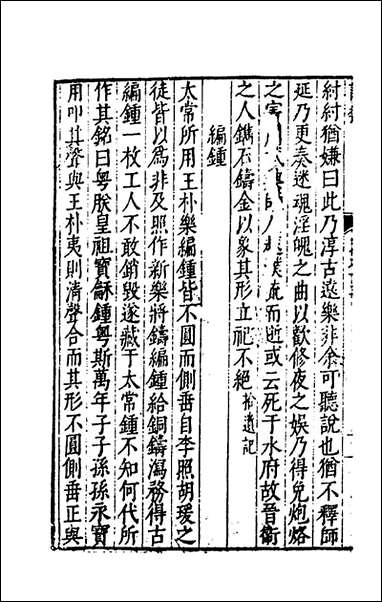 紂紂猶嫌曰此乃淳古遠樂非余可聽說也猶不釋師
延乃更奏迷魂淫魄之曲以歡修夜之娛乃得免炮烙
之害而逝或云死于水府故晉衛
之人鐫石鑄金以象其形立祀不絕拾遺記
編鍾
太常所用王朴樂編鍾皆不圓而側垂自李照胡瑗之
徒皆以為非及照作新樂將鑄編鍾給銅鑄瀉務得古
編鍾一枚工人不敢銷毀遂藏于太常鍾不知何代所
作其銘曰粤朕皇祖寶龢鍾粤斯萬年子子孫孫永寶
用叩其聲與王朴夷則清聲合而其形不圓側垂正與